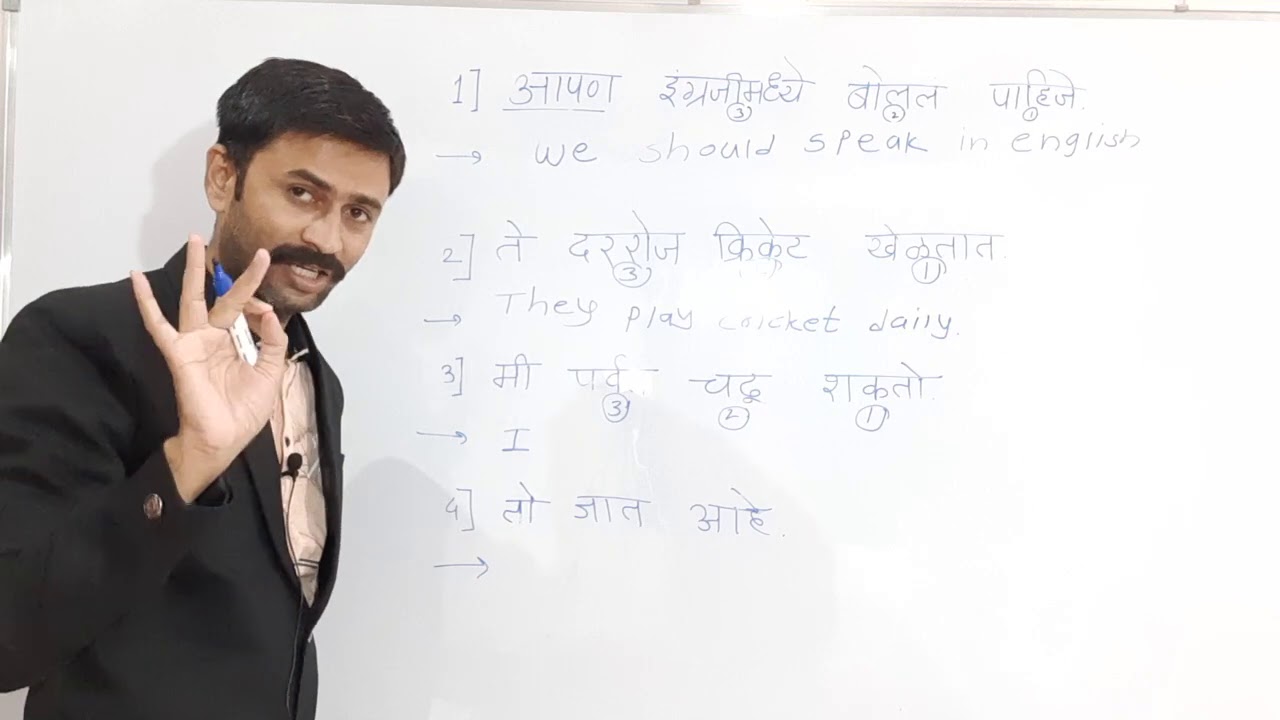 1] आपण इंग्रजीमध्ये बोललं पाहिजे.
3 2 1
→ we should speak in english
2] ते दररोज क्रिकेट खेळतात.
3 1
→ They play cricket daily.
3] मी चढू शकतो.
3 2 1
→ I
4] तो जात आहे.
→